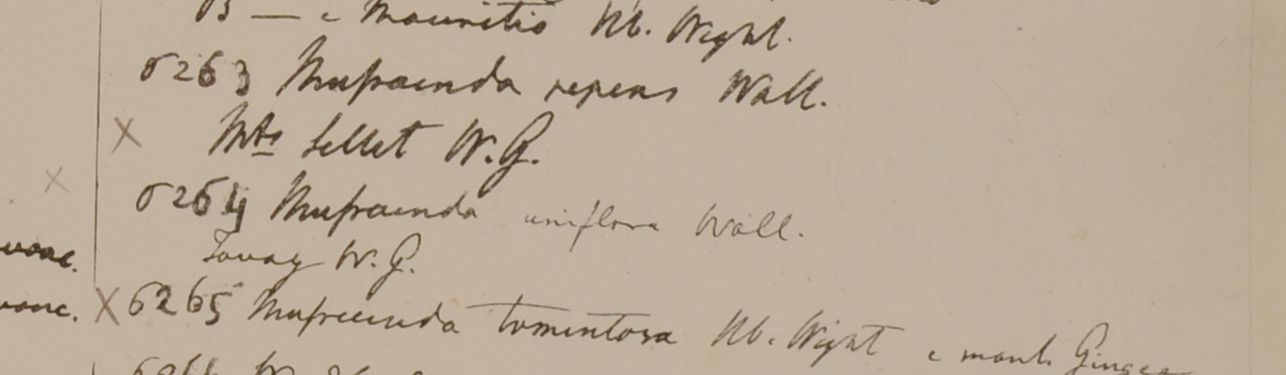 B — e Mauritio Hb. Wight.
6263 Mussaenda repens Wall.
X Mts Sillet W.G.
X
6264 Mussaenda uniflora Wall.
Tavay W.G.
X 6265 Mussaenda tomentosa Hb. Wight e mont. Gingee